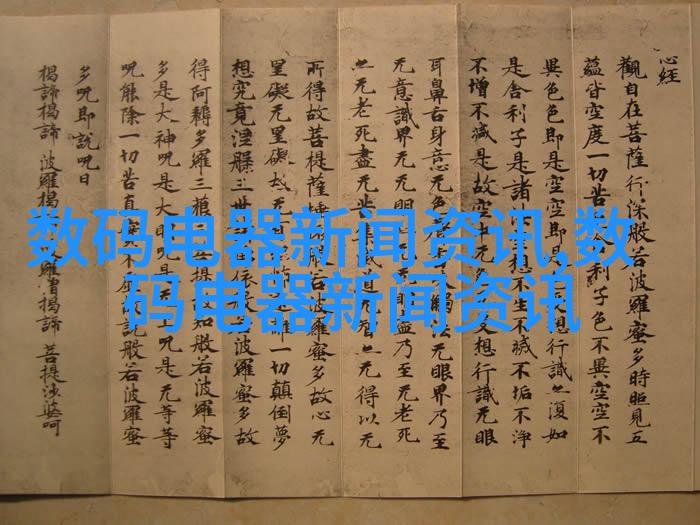 心经
觀自在菩薩行深般若波羅蜜多時照見五
蘊皆空度一切苦利子色不異空空不
異色色即是空空即是想行識亦復如
是舍利子是諸想不生不滅不垢不淨
不增不減是故空中无色受想行識无眼
耳鼻舌身意无色觸法无眼界乃至
无意識界无无明盡乃至无老死
亦无老死盡无苦集滅道无智亦无得以无
所得故菩提薩埵般若波羅蜜多故心无
罣礙无罣礙故无怖離一切顛倒夢
想究竟涅槃三世依般若波羅蜜多故
得阿耨多羅三菩提故知般若波羅蜜
多是大神呪是大明呪是无上呪是无等等
呪能除一切苦真實不說般若波羅蜜
多呪即說呪曰
揭諦揭諦 波羅揭 羅僧揭諦 菩提沙婆呵
数码电器新闻资讯,数
码电器新闻资讯